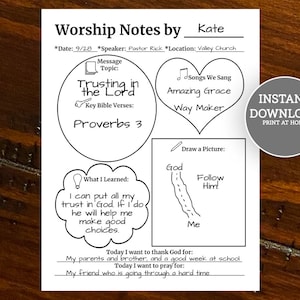 Worship Notes by Kate
*Date: 9/28 *Speaker: Pastor Rick *Location: Valley Church
Message
Topic:
Trusting in
the Lord
Key Bible Verses:
Proverbs 3
Songs We Sang
Amazing Grace
Way Maker
INSTANT
DOWNLOAD
PRINT AT HO
What I Learned:
I can put all my
trust in God. If I do
he will help me
make good
choices.
Draw a Picture:
God
Follow
Him!
Me
Today I want to thank God for:
My parents and brother, and a good week at school.
Today I want to pray for:
My friend who is going through a hard time.